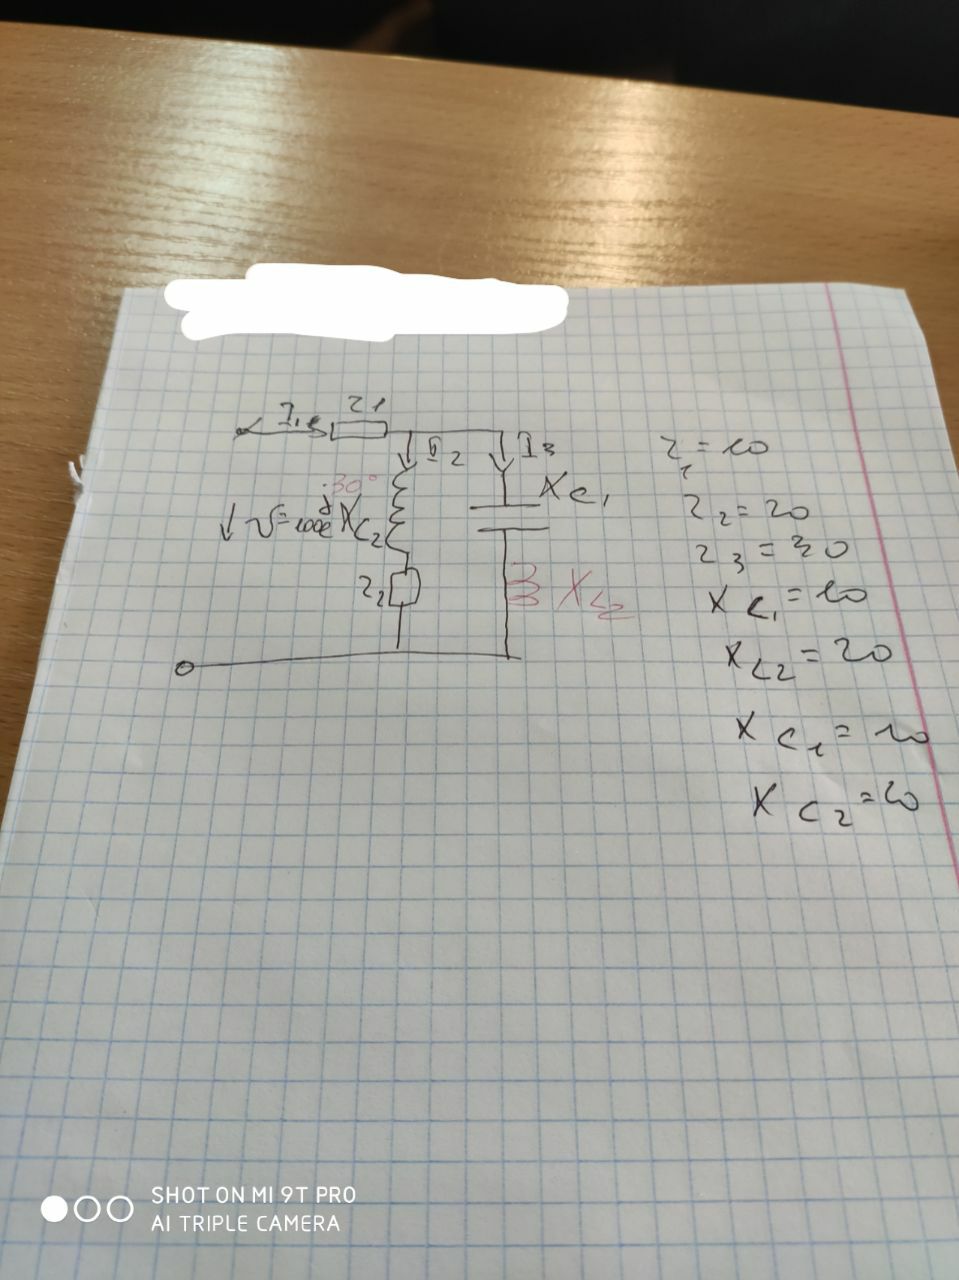 I₁ r1
I₂
I₃
30°
U=100e^j
X_C₂
X_C₁
r₂
X_L₂
r₁=10
r₂=20
r₃=30
X_L₁=10
X_L₂=20
X_C₁=10
X_C₂=20
SHOT ON MI 9T PRO
AI TRIPLE CAMERA